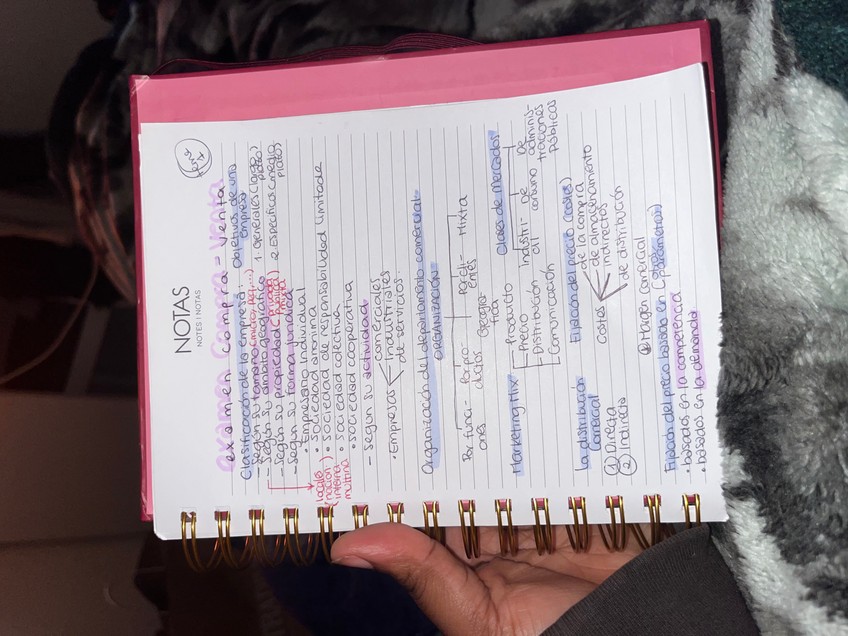 NOTAS
NOTES | NOTES
examen compra-venta
Clasificación de la empresa:
objetivos de una empresa
- según su tamaño (micro, peq,...)
1. Generales (largo plazo)
- según su ámbito geográfico
- según su propiedad (privada, pública, mixta)
2. Específicos (medio plazo)
- según su forma jurídica
• Empresario individual
• sociedad anónima
• sociedad de responsabilidad limitada
• sociedad colectiva
• sociedad cooperativa
local
nación
interna
multina
- según su actividad
• Empresas
comerciales
industriales
de servicios.
Organización del departamento comercial
ORGANIZACIÓN
Por funciones
Por productos
Geográfica
Por clientes
Mixta
Marketing Mix
Producto
Precio
Distribución
Comunicación
Clases de mercados
Industrial
De consumo
De administraciones públicas
La distribución comercial
① Directa
② Indirecta
Fijación del precio (costes)
costes
de la compra
de almacenamiento
indirectos
de distribución
④ Margen comercial
Fijación del precio basado en (otros parámetros)
• basados en la competencia
• basados en la demanda